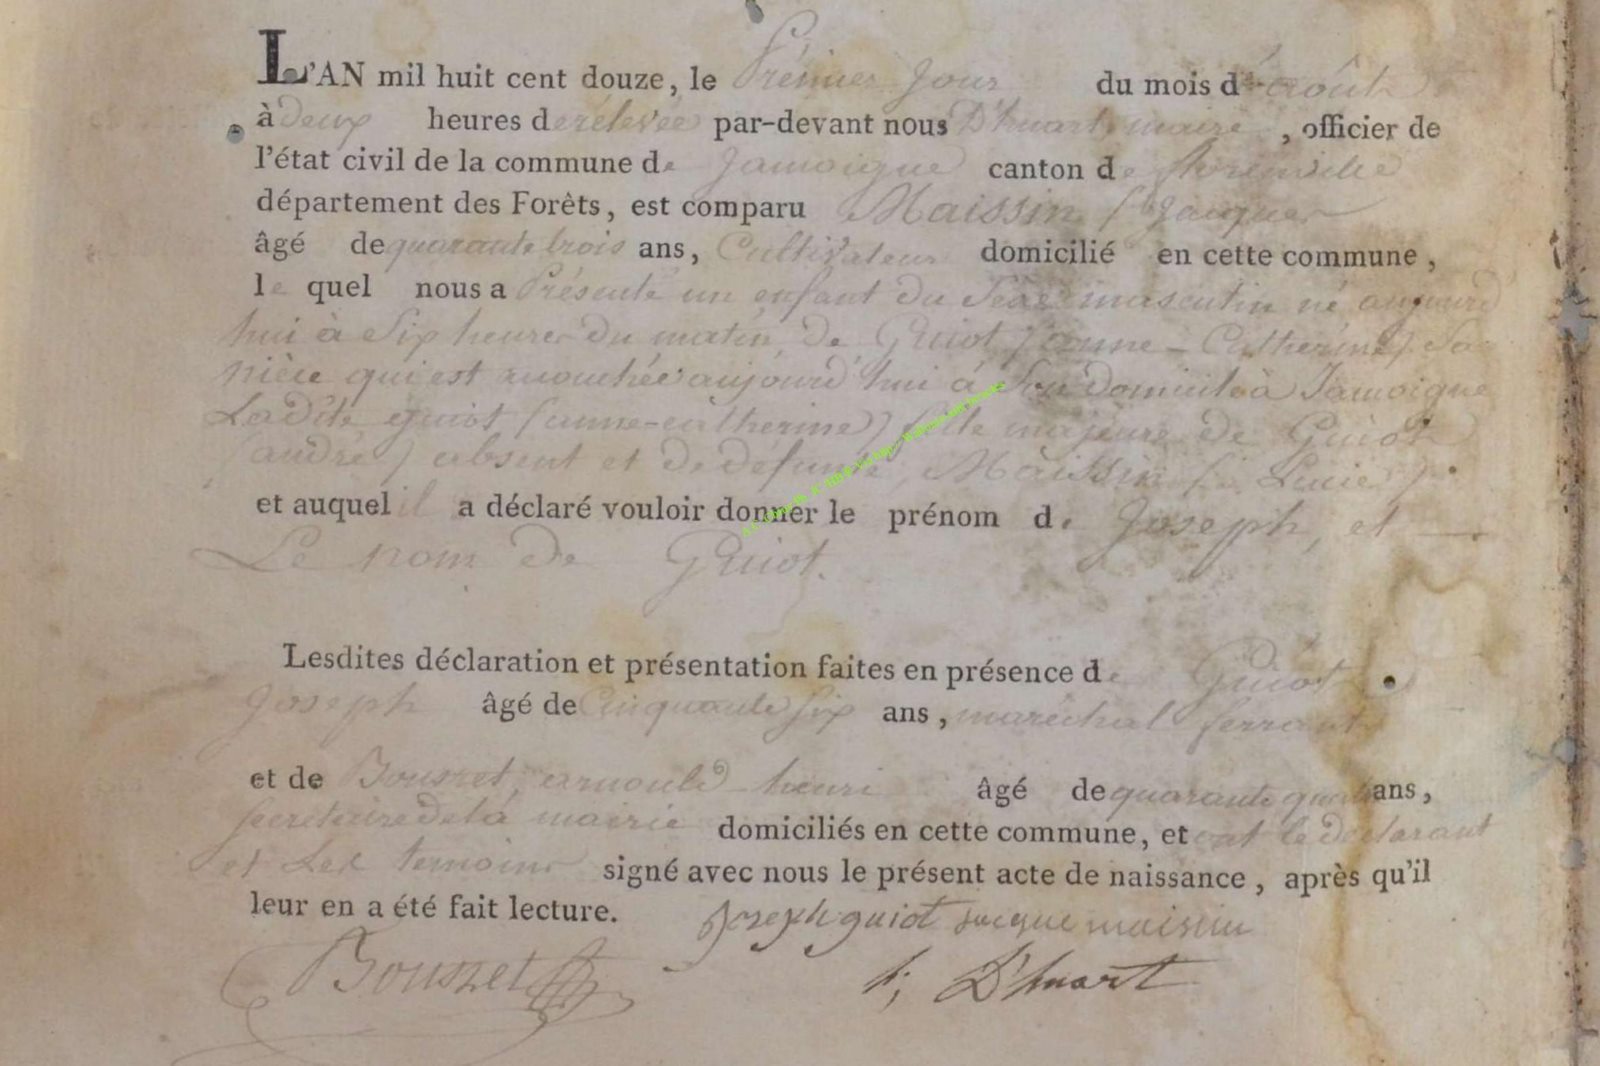 L'AN mil huit cent douze, le Prémier Jour du mois d'août
à deux heures de rélevée par-devant nous D'huart, maire, officier de
l'état civil de la commune de Jamoigne canton de florenville
département des Forêts, est comparu Maissin (Jacques
âgé de quarante trois ans, Cultivateur domicilié en cette commune,
le quel nous a Présenté un enfant du Sexe masculin né aujourd
hui à Six heures du matin, de Guiot (anne-Catherine) Sa
nièce qui est accouchée aujourd'hui à Son domicile à Jamoigne
Ladite guiot (anne-catherine) fille majeure de Guiot
(andré) absent et de défunte, Maissin Lucie).
et auquel il a déclaré vouloir donner le prénom de Joseph, et
Le nom de Guiot.
Lesdites déclaration et présentation faites en présence de Guiot
Joseph âgé de Cinquante Six ans, maréchal ferrant
et de Bousret, arnould henri âgé de quarante quatre ans,
Secrétaire de la mairie domiciliés en cette commune, et ont le déclarant
et Les temoins signé avec nous le présent acte de naissance, après qu'il
leur en a été fait lecture. Joseph guiot Jacque maissin
Bousret D'huart